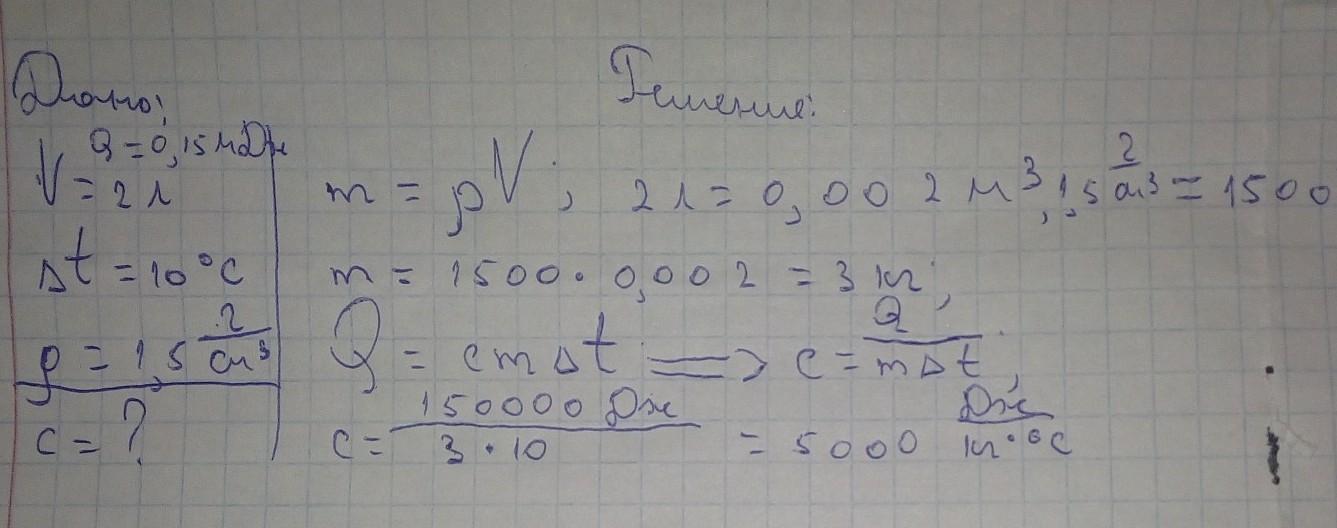 Дано:
Решение:
Q = 0,15 МДж
V = 2 л
Δt = 10 °C
ρ = 1,5 г/см³
c = ?
m = ρV; 2 л = 0,002 м³, 1,5 г/см³ = 1500
m = 1500 · 0,002 = 3 кг;
Q = cmΔt => c = Q/mΔt;
c = 150000 Дж / 3 · 10 = 5000 Дж/кг · °C